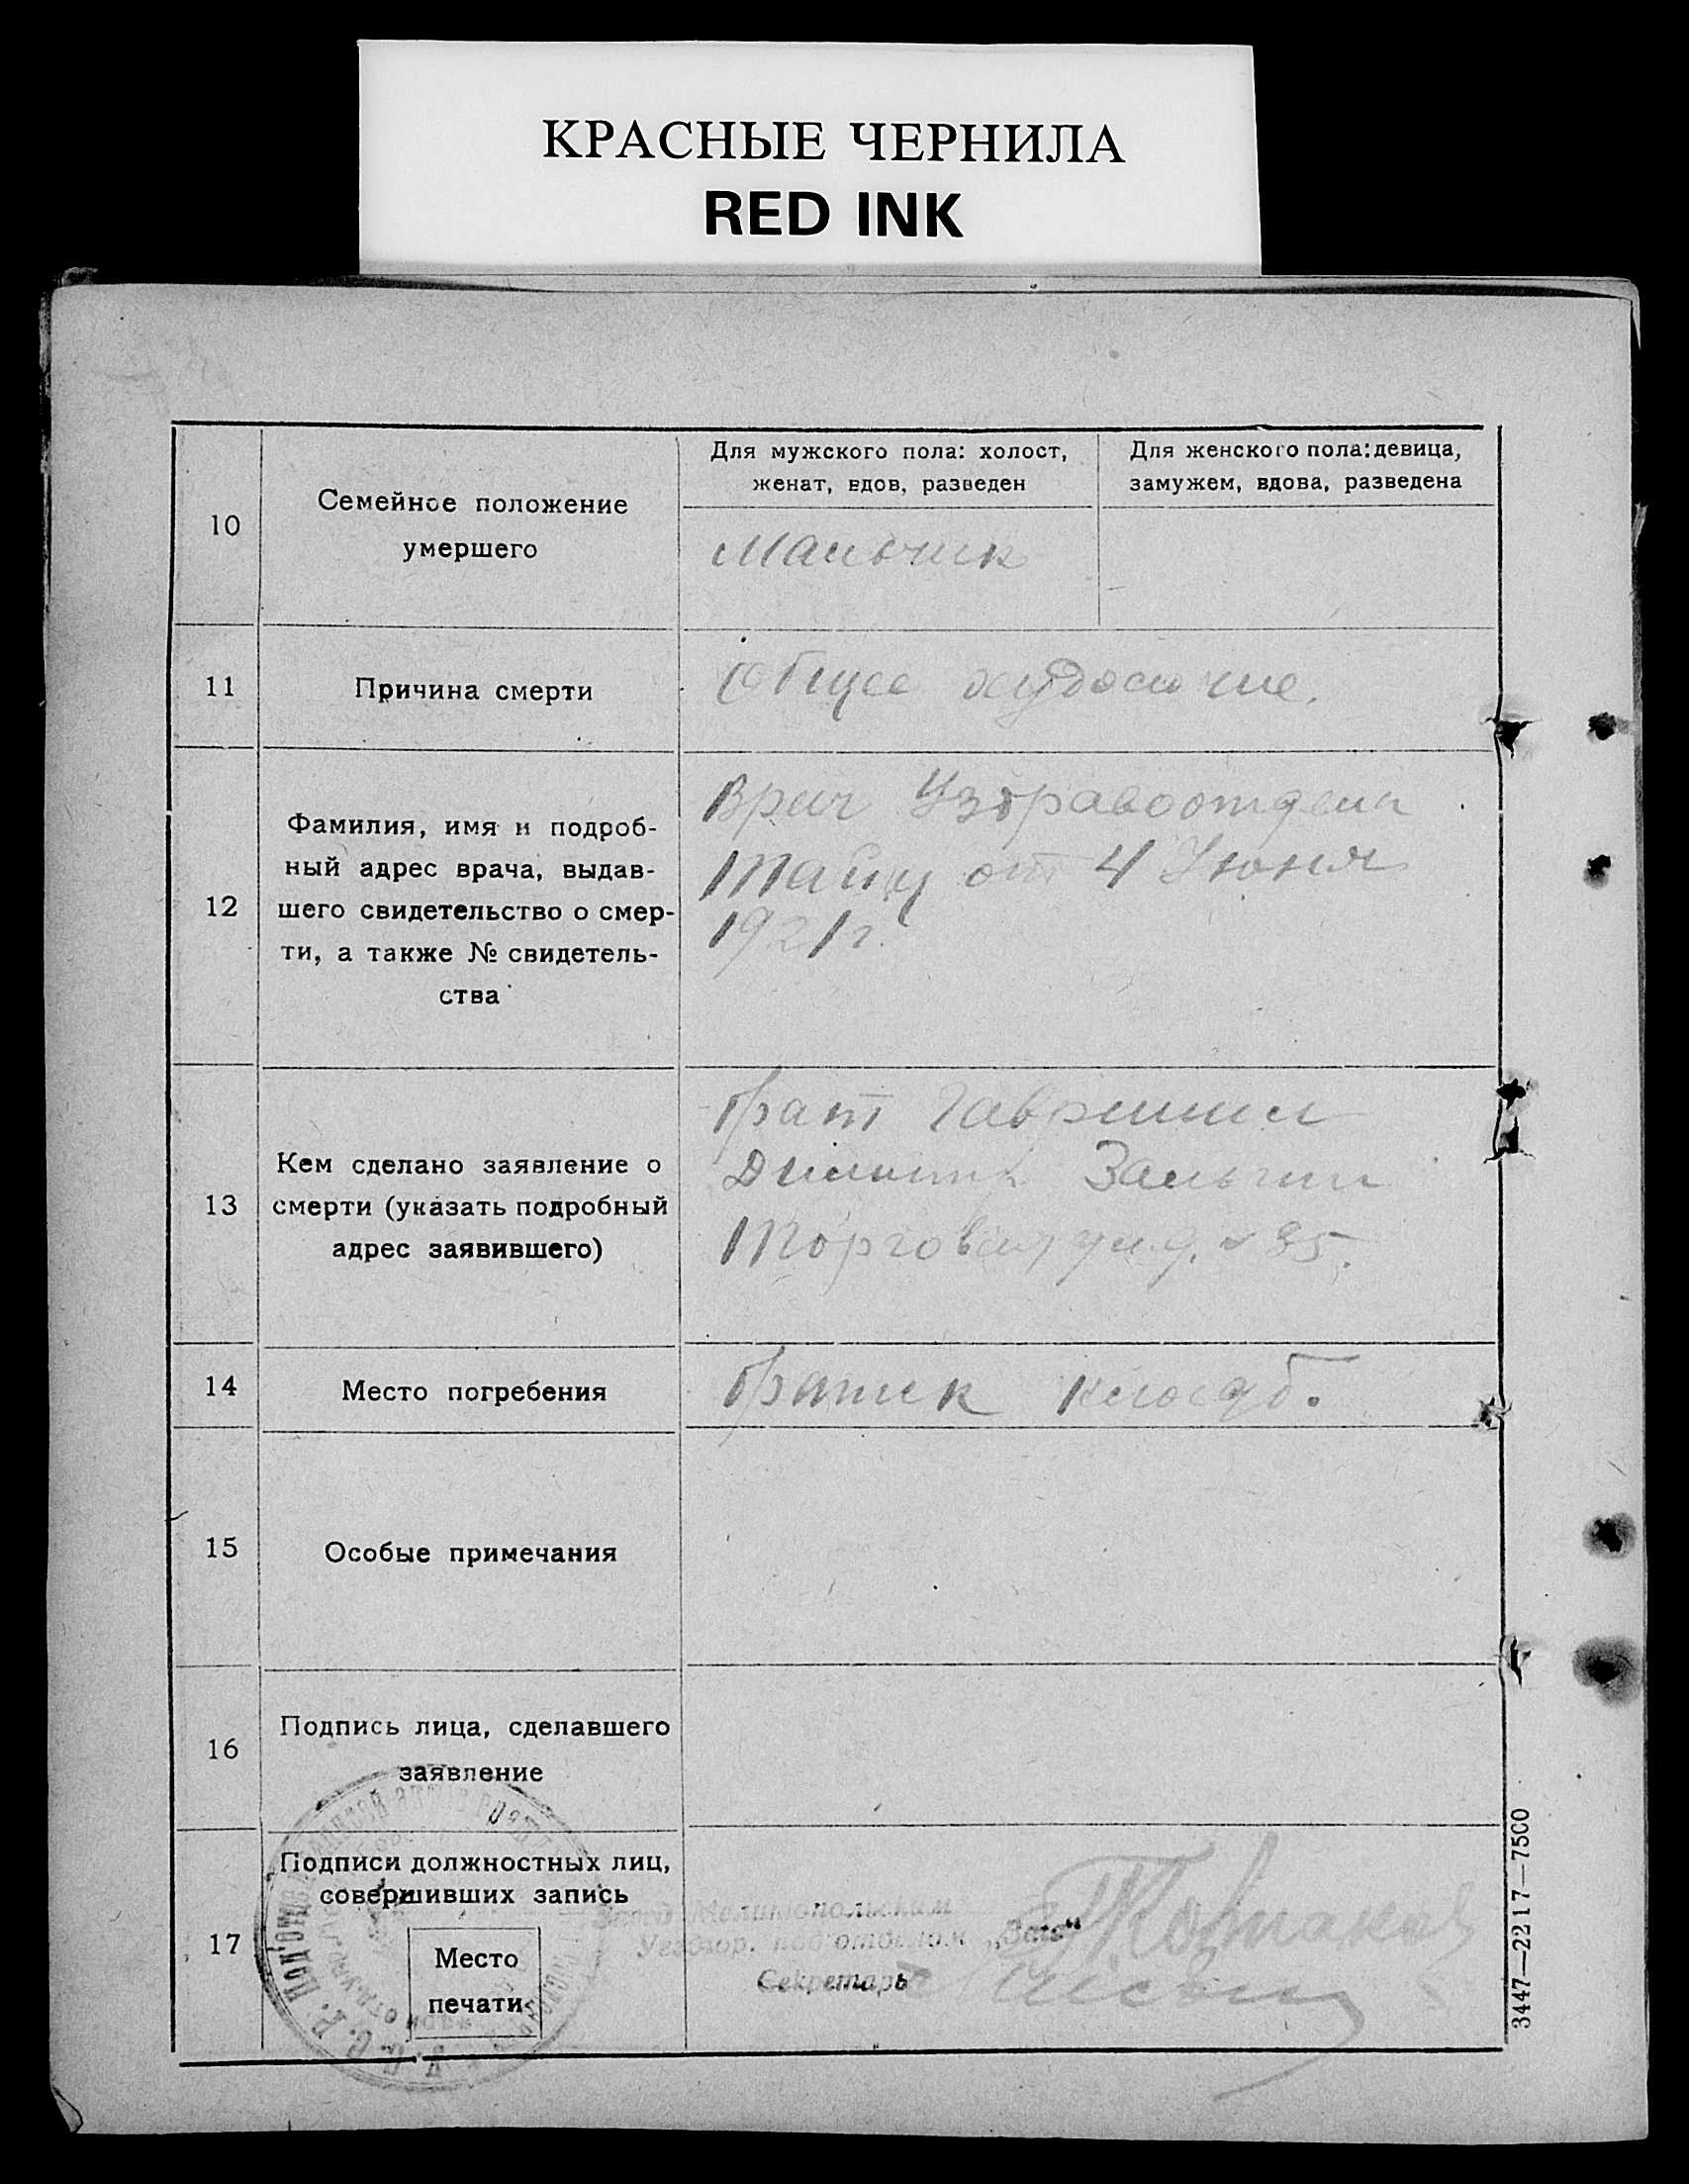 КРАСНЫЕ ЧЕРНИЛА
RED INK
Для мужского пола: холост,
женат, вдов, разведен
Для женского пола: девица,
замужем, вдова, разведена
10
Семейное положение
умершего
Мальчик
11
Причина смерти
Общее худосочие.
12
Фамилия, имя и подроб-
ный адрес врача, выдав-
шего свидетельство о смер-
ти, а также № свидетель-
ства
Врач Уздравоотдела
от 4 Июня
1921 г.
13
Кем сделано заявление о
смерти (указать подробный
адрес заявившего)
Брат Гавриила
Дмитр
Торговая ул. д. № 35.
14
Место погребения
Братск кладб.
15
Особые примечания
16
Подпись лица, сделавшего
заявление
17
Подписи должностных лиц,
совершивших запись
Место
печати
Мелитопольским
под'отделом „Загс“
Секретарь
3447—2217—7500